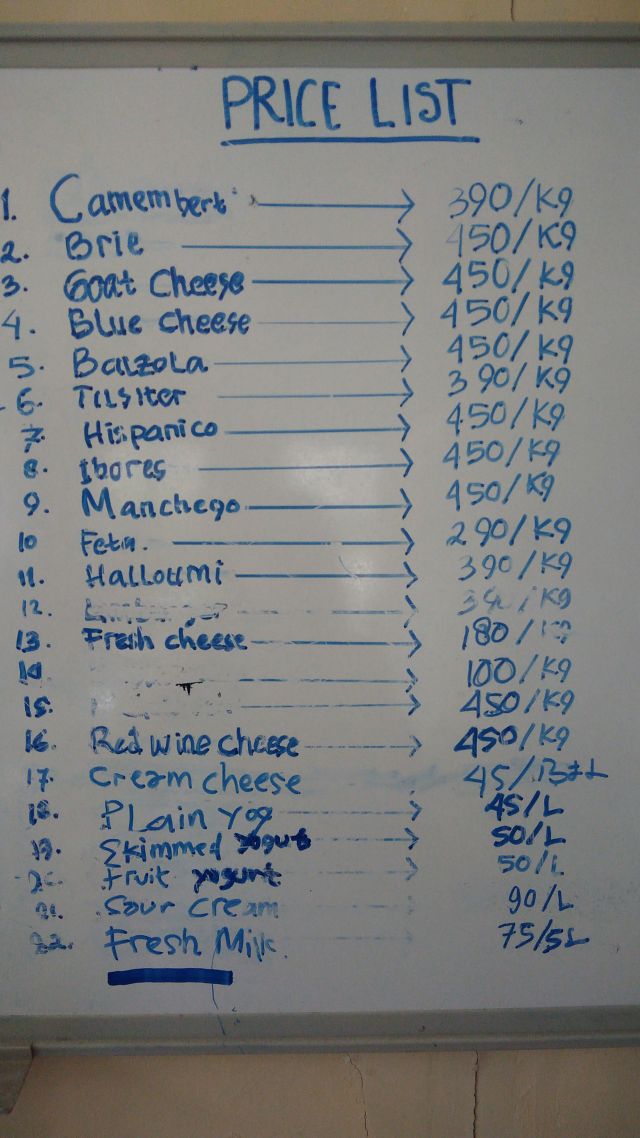 PRICE LIST
1. Camembert → 390/Kg
2. Brie → 450/Kg
3. Goat Cheese → 450/Kg
4. Blue cheese → 450/Kg
5. Balzola → 450/Kg
6. Tilsiter → 390/Kg
7. Hispanico → 450/Kg
8. Ibores → 450/Kg
9. Manchego → 450/Kg
10 Feta. → 290/Kg
11. Halloumi → 390/Kg
12. → /Kg
13. Fresh cheese → 180/Kg
14 → 100/Kg
15. → 450/Kg
16. Red wine cheese → 450/Kg
17. Cream cheese 45/
18. Plain Yog → 45/L
19. Skimmed yogurt → 50/L
20. Fruit yogurt → 50/L
21. Sour cream → 90/L
22. Fresh Milk. → 75/5L